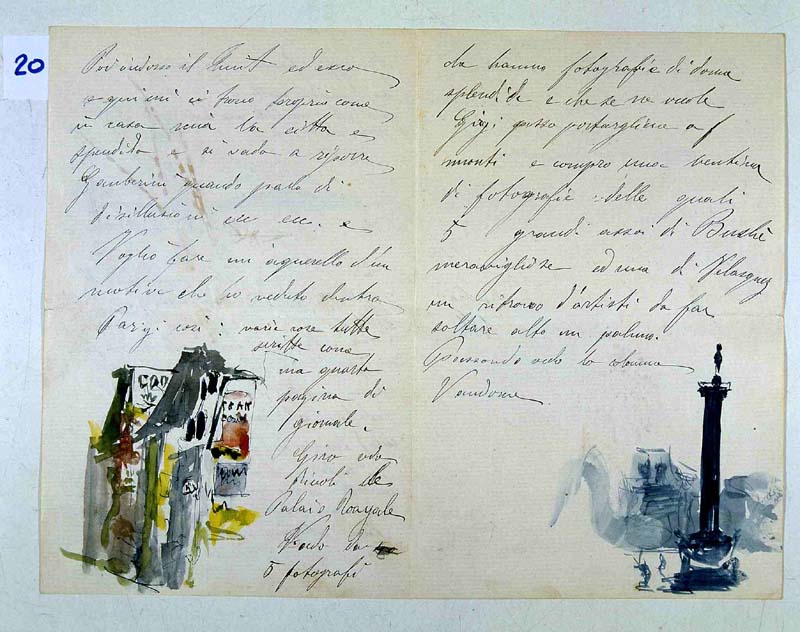 20
Poi indosso il ed esco
e quivi mi trovo proprio come
in casa mia la città e
spendida e si vada a riporre
Gamberini quando parla di
disillusioni ecc ecc. e
Voglio fare un aquerello d'un
motivo che ho veduto dentro
Parigi così: varie cose tutte
scritte come
una quarta
pagina di
giornale.
Giro
Rivoli
Palais Rouyale
Vado da
5 fotografi
da hanno fotografie di doma
splendide e che se ne vuole
Gigi posso portargliene a f
monti e compro una ventina
di fotografie: delle quali
5 grandi assai di
meravigliose ed una di Velasquez
un ritrovo d'artisti da far
saltare alto un palmo.
Passando vedo la colonna
Vandome